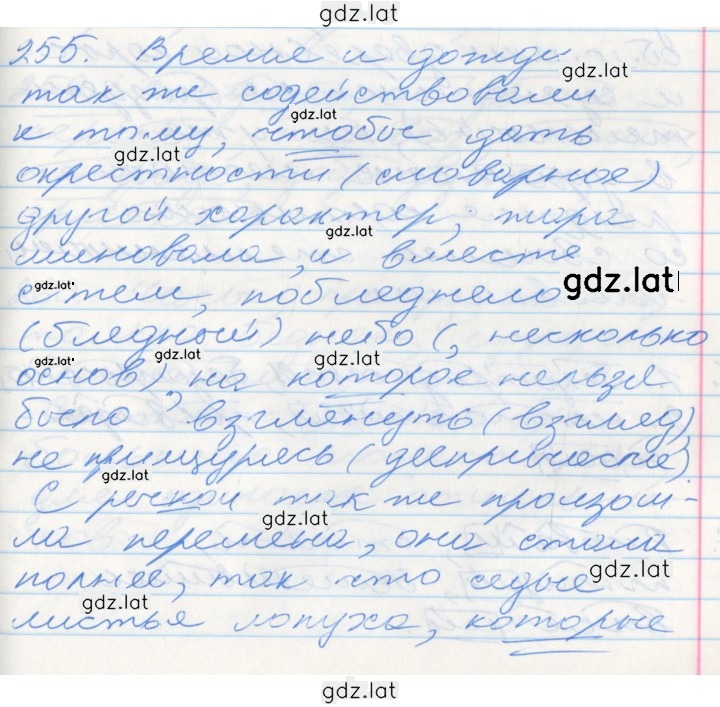 gdz.lat
255. Время и дожди
gdz.lat
так же содействовали
gdz.lat
к тому, чтобы дать
gdz.lat
окрестности (словарное)
другой характер; жара
gdz.lat
миновала, и вместе
gdz.lat
gdz.lat
с тем, побледнело
(бледный) небо (, несколько
gdz.lat
gdz.lat
основ) на которое нельзя
было взглянуть (взгляд)
не прищурясь (деепричастие)
gdz.lat
С речкой так же произош-
gdz.lat
ла перемена, она стала
gdz.lat
полнее, так что седые
gdz.lat
листья лопуха, которые
gdz.lat